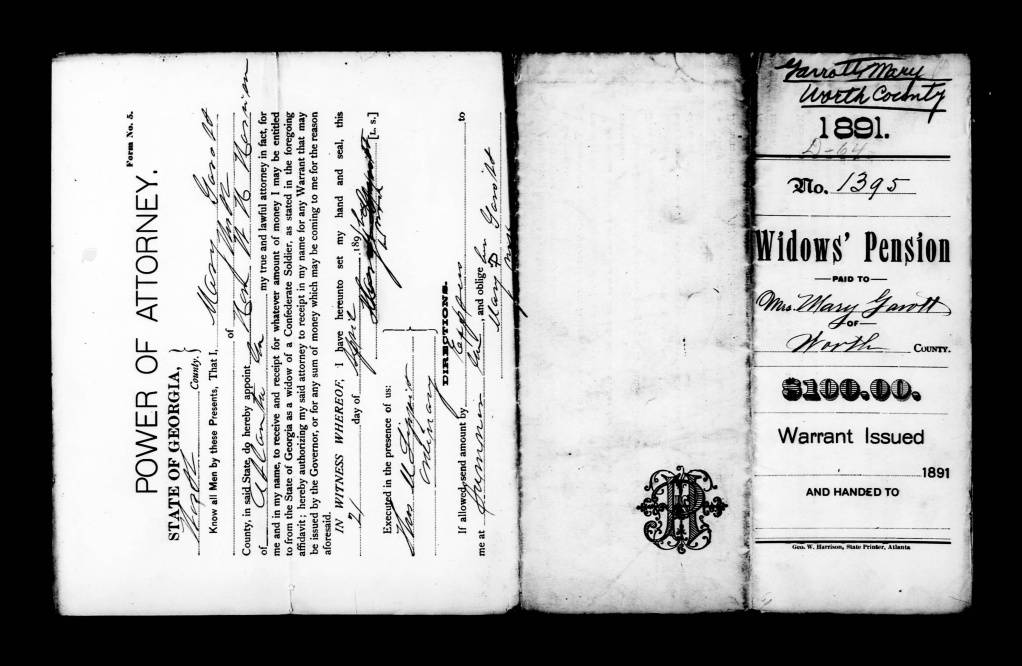 Form No. 5.
POWER OF ATTORNEY.
STATE OF GEORGIA,
Worth County.
Know all Men by these Presents, That I, Mary Garott
of Worth
County, in said State, do hereby appoint Hon W H Harrison
of Atlanta Ga my true and lawful attorney in fact, for
me and in my name, to receive and receipt for whatever amount of money I may be entitled
to from the State of Georgia as a widow of a Confederate Soldier, as stated in the foregoing
affidavit; hereby authorizing my said attorney to receipt in my name for any Warrant that may
be issued by the Governor, or for any sum of money which may be coming to me for the reason
aforesaid.
IN WITNESS WHEREOF, I have hereunto set my hand and seal, this
day of April 189
[L. S.]
Executed in the presence of us:
DIRECTIONS.
If allowed, send amount by Express to
me at Sumner Ga, and oblige
Mary Garott
Garrott, Mary
Worth County
1891.
D-64
No. 1395
Widows' Pension
PAID TO
Mrs. Mary Garott
OF
Worth COUNTY.
$100.00.
Warrant Issued
1891
AND HANDED TO
Geo. W. Harrison, State Printer, Atlanta